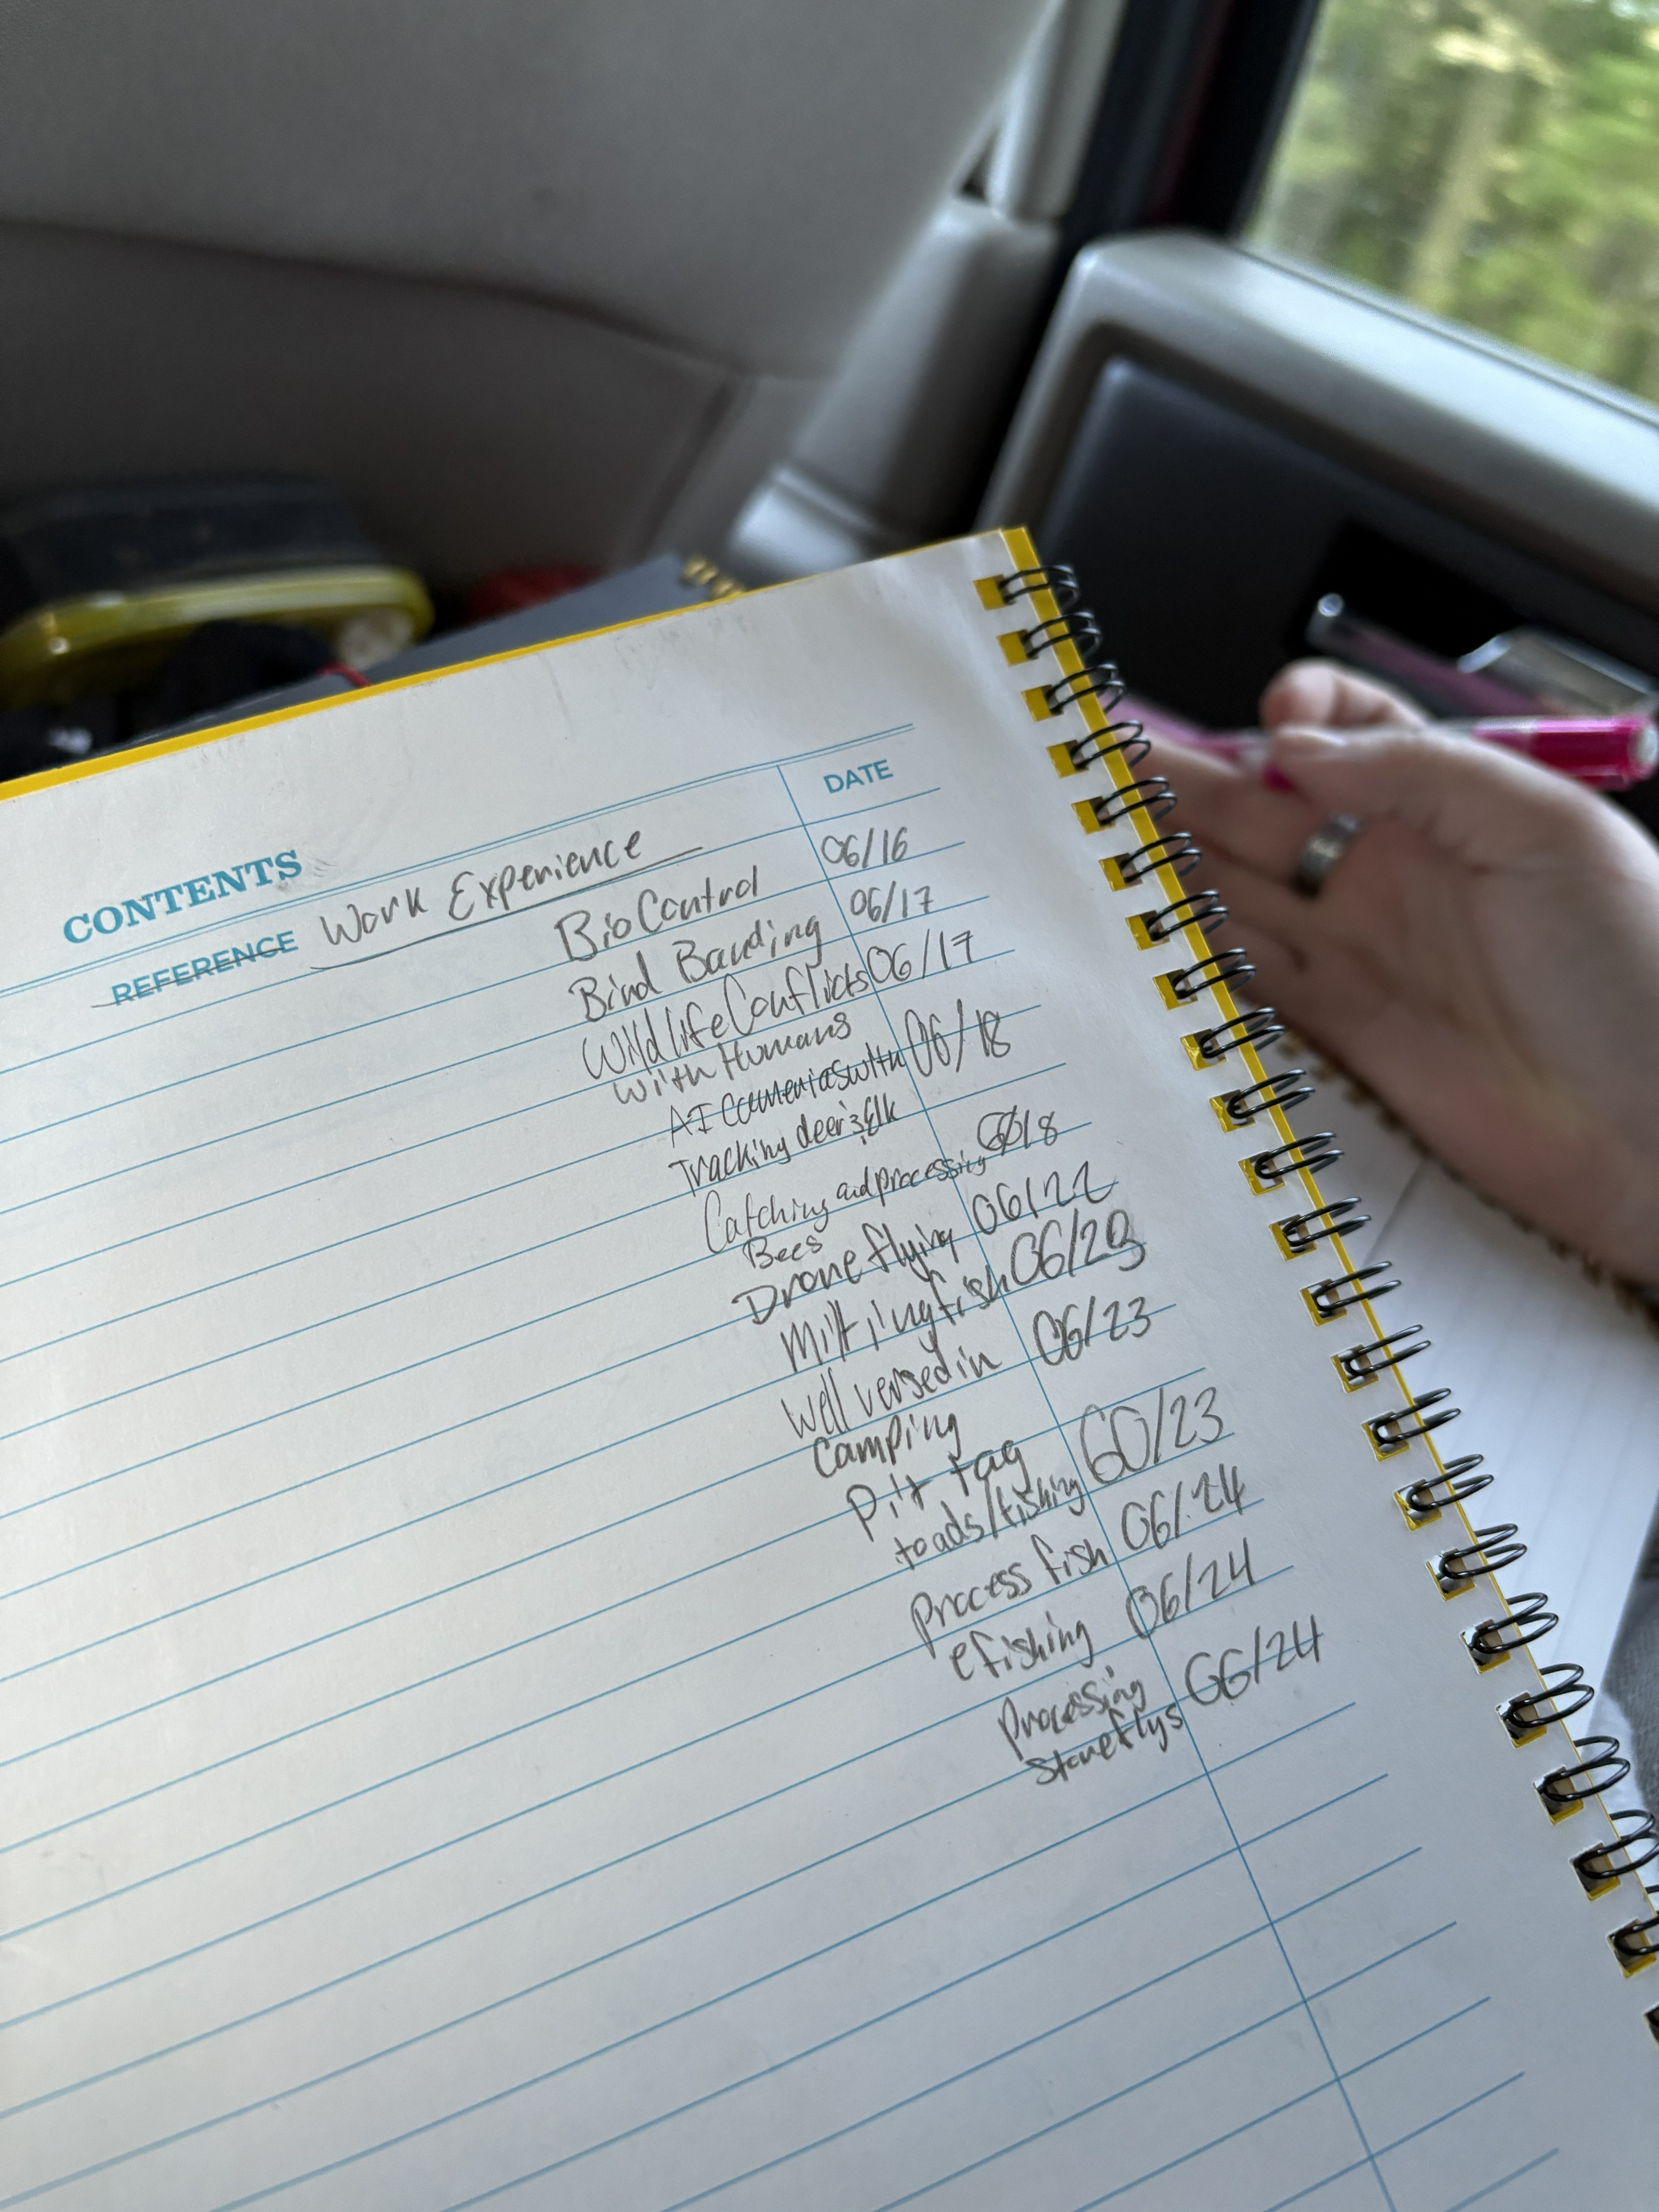 CONTENTS
DATE
REFERENCE Work Experience
BioControl 06/16
Bird Banding 06/17
Wildlife Conflicts 06/17
with Humans
AI cameras with 06/18
Tracking deer & Elk
Catching and processing 18
Bees
Drone flying 06/22
Miltiing fish 06/23
Well versed in 06/23
camping
Pit tag 60/23
toads/fishing
Process fish 06/24
efishing 06/24
Processing 06/24
stoneflys